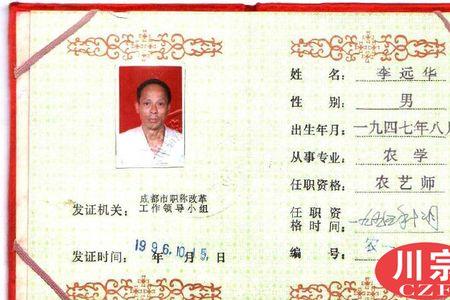 成都市职称改革
发证机关：工作领导小组
发证时间：1996年10月15日
姓名：李远华
性别：男
出生年月：一九四七年八月
从事专业：农学
任职资格：农艺师
任职资
格时间：
编号：
川宗